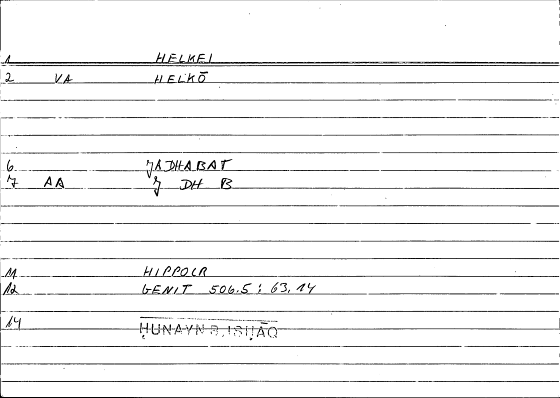 1 HELKEI
2 VA HELKŌ
6 JADHABAT
7 AA J DH B
11 HIPPOCR
12 GENIT 506.5 ; 63,14
14 ḤUNAYN B. ISḤĀQ